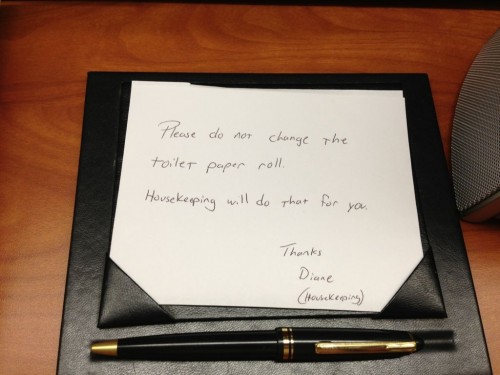 Please do not change the
toilet paper roll.
Housekeeping will do that for you.
Thanks
Diane
(Housekeeping)